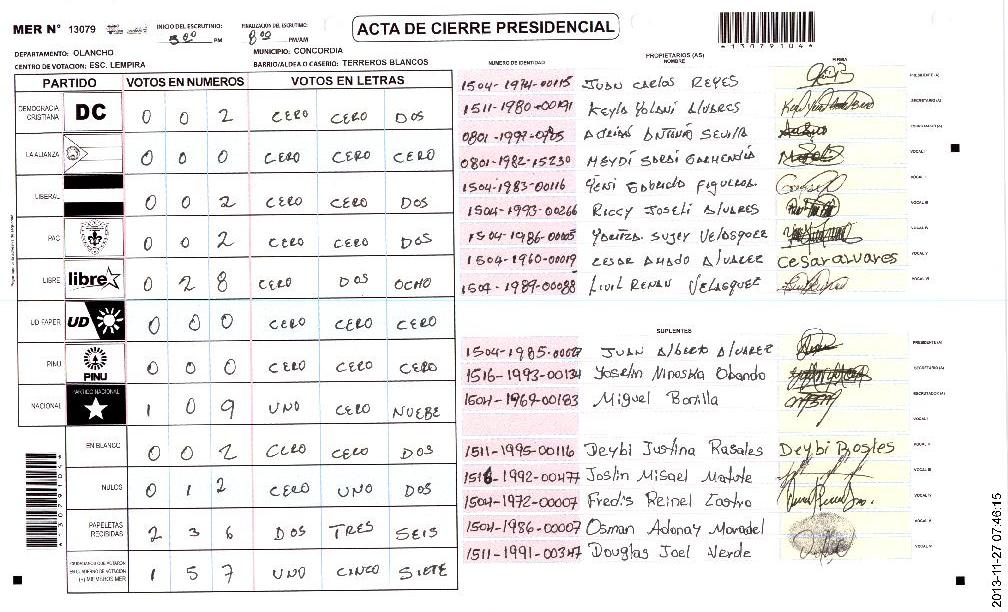 MER N° 13079
INICIO DEL ESCRUTINIO: 5:00 PM
FINALIZACION DEL ESCRUTINIO: 8:00 PM/AM
ACTA DE CIERRE PRESIDENCIAL
*13079104*
DEPARTAMENTO: OLANCHO
MUNICIPIO: CONCORDIA
CENTRO DE VOTACION: ESC. LEMPIRA
BARRIO/ALDEA O CASERIO: TERREROS BLANCOS
PARTIDO VOTOS EN NUMEROS VOTOS EN LETRAS
DEMOCRACIA CRISTIANA DC 0 0 2 CERO CERO DOS
LA ALIANZA 0 0 0 CERO CERO CERO
LIBERAL 0 0 2 CERO CERO DOS
PAC 0 0 2 CERO CERO DOS
LIBRE libre 0 2 8 CERO DOS OCHO
UD FAPER UD 0 0 0 CERO CERO CERO
PINU PINU 0 0 0 CERO CERO CERO
NACIONAL PARTIDO NACIONAL 1 0 9 UNO CERO NUEBE
EN BLANCO 0 0 2 CERO CERO DOS
NULOS 0 1 2 CERO UNO DOS
PAPELETAS RECIBIDAS 2 3 6 DOS TRES SEIS
CIUDADANOS QUE VOTARON EN EL CUADERNO DE VOTACION (+) MIEMBROS MER 1 5 7 UNO CINCO SIETE
*13079104*
PROPIETARIOS (AS)
NUMERO DE IDENTIDAD NOMBRE FIRMA
1504-1974-00115 JUAN CARLOS REYES PRESIDENTE (A)
1511-1980-00191 Keyla Yolani Alvares SECRETARIO (A)
ANTONIO SEVILLA ESCRUTADOR (A)
0801-1982-15230 HEYDI VOCAL I
1504-1983-00116 VOCAL II
1504-1993-00266 RICCY JOSELI ALVARES VOCAL III
1504-1986-00005 SUJEY VELASQUEZ VOCAL IV
1504-1960-00019 CESAR AMADO ALVAREZ cesar alvares VOCAL V
1504-1989-00088 RENAN VELASQUEZ VOCAL VI
SUPLENTES
1504-1985-00027 JUAN Alberto ALVAREZ PRESIDENTE (A)
1516-1993-00134 Yoselin Ninoska Obando SECRETARIO (A)
1504-1969-00183 Miguel Bonilla ESCRUTADOR (A)
VOCAL I
1511-1995-00116 Deybi Justina Rosales Deybi Rosales VOCAL II
1516-1992-00477 Joslin Misael Matute VOCAL III
1504-1972-00007 Fredis Reinel Castro VOCAL IV
1504-1986-00007 Osman Adonay VOCAL V
1511-1991-00347 Douglas Joel Verde VOCAL VI
2013-11-27 07:46:15